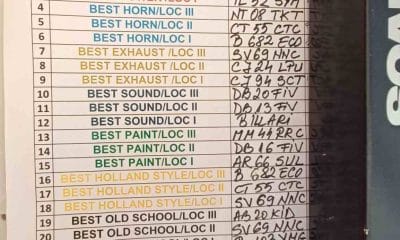 4 BEST HORN/LOC III NT 08 TKT
5 BEST HORN/LOC II CT 55 CTC
6 BEST HORN/LOC I B 682 ECO
7 BEST EXHAUST/LOC III SV 69 NNC
8 BEST EXHAUST/LOC II CJ 24 LPU
9 BEST EXHAUST/LOC I CJ 94 SCT
10 BEST SOUND/LOC III DB 20 FIV
11 BEST SOUND/LOC II DB 13 FIV
12 BEST SOUND/LOC I
13 BEST PAINT/LOC III MM 44 RRC
14 BEST PAINT/LOC II DB 16 FIV
15 BEST PAINT/LOC I AR 66 SUL
16 BEST HOLLAND STYLE/LOC III B 682 ECO
17 BEST HOLLAND STYLE/LOC II CT 55 CTC
18 BEST HOLLAND STYLE/LOC I SV 69 NNC
19 BEST OLD SCHOOL/LOC III AB 20 KID
20 BEST OLD SCHOOL/LOC II